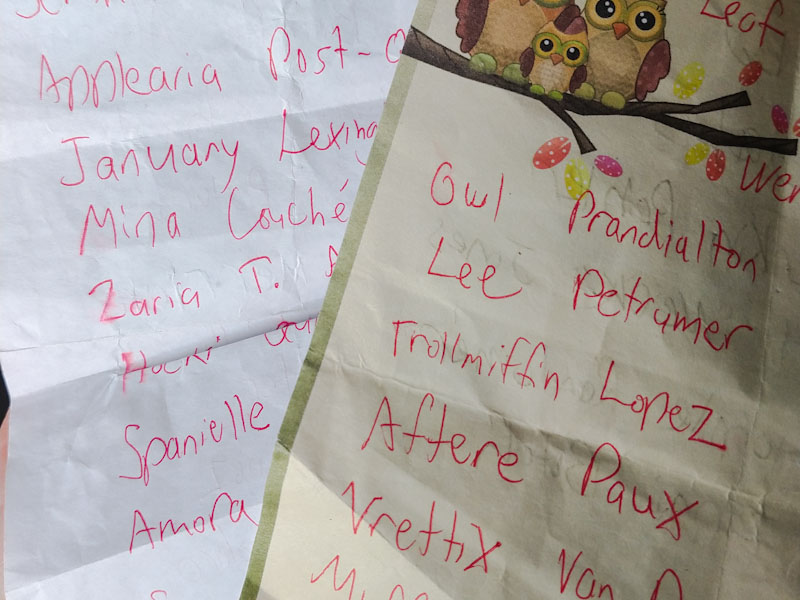 Applearia Post-
January Lexing
Mina Couché
Zaria T.
Spanielle
Amora
Leaf
Wer
Owl Prandialton
Lee Petrumer
Trollmiffin Lopez
Aftere Paux
Vrettix Van